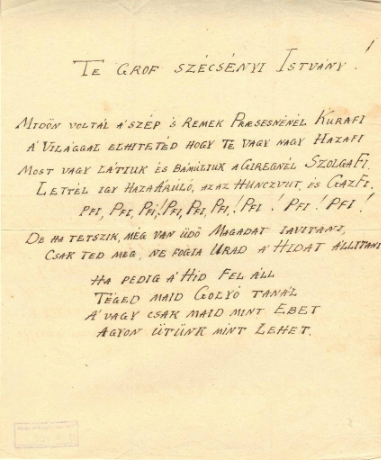 TE GRÓF SZÉCSÉNYI ISTVÁNY!
MIDŐN VOLTÁL Á SZÉP 'S REMEK PRÆSESNÉNÉL KURAFI
Á VILÁGGAL ELHITETÉD HOGY TE VAGY NAGY HAZAFI
MOST VAGY LÁTIUK ÉS BÁMÚLIUK Á GIREGNÉL SZOLGAFI,
LETTÉL IGY HAZAÁRÚLÓ, AZAZ HUNCZVUT, ÉS GAZFI,
PFI, PFI, PFI! PFI, PFI, PFI! PFI! PFI! PFI!
DE HA TETSZIK, MÉG VAN ÜDŐ MAGADAT IAVITANI,
CSAK TED MEG, NE FOGIA URAD Á HIDAT ÁLLITANI
HA PEDIG Á HID FEL ÁLL
TÉGED MAID GOLYÓ TANÁL
Á VAGY CSAK MAID MINT EBET
AGYON ÜTÜNK MINT LEHET.